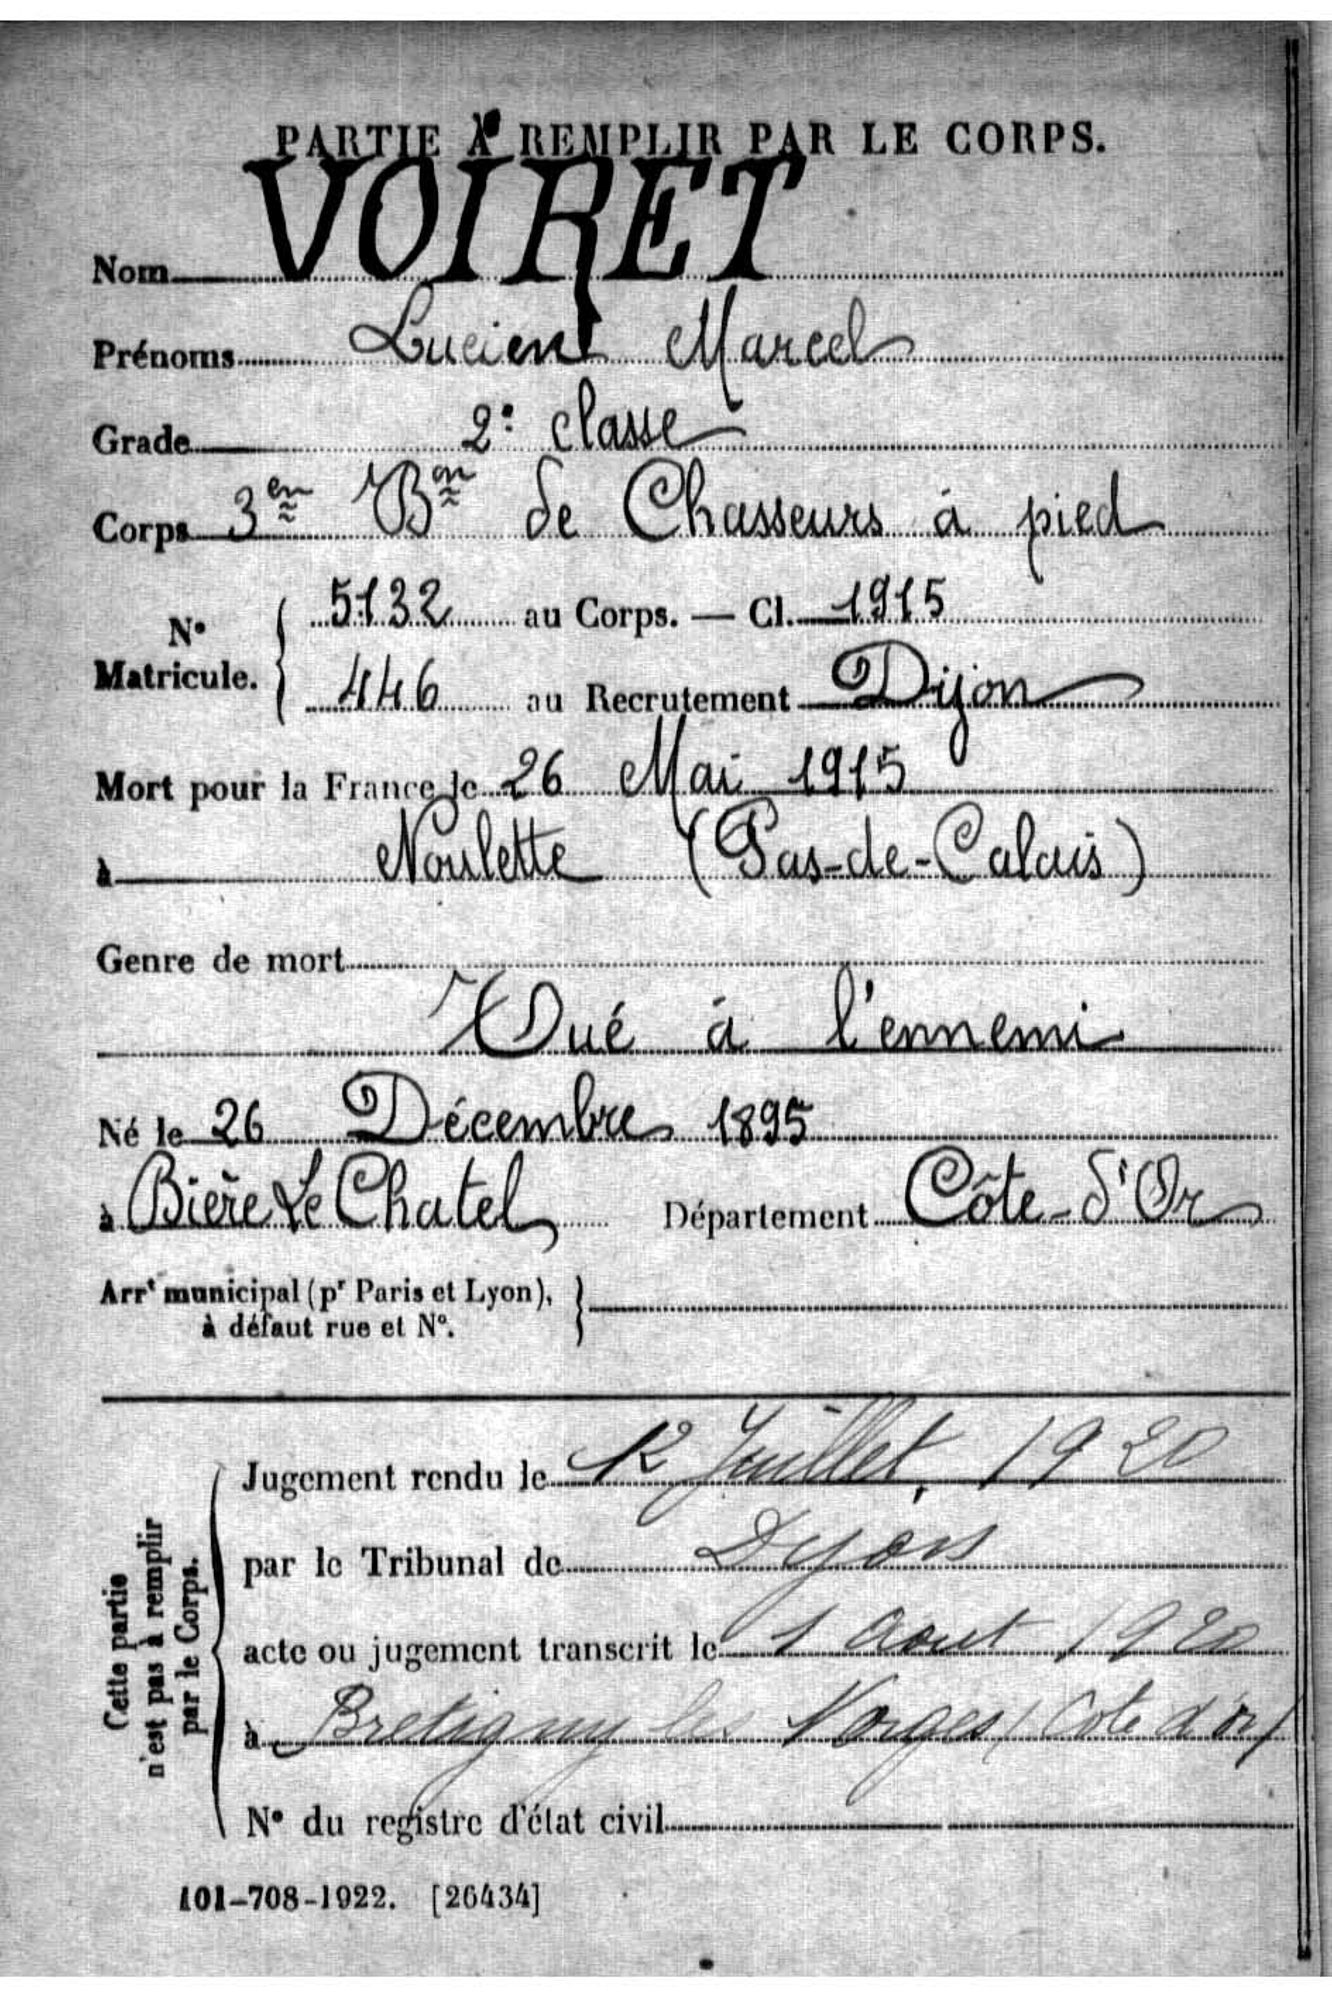 PARTIE À REMPLIR PAR LE CORPS.
Nom VOIRET
Prénoms Lucien Marcel
Grade 2e classe
Corps 3en Bon de Chasseurs à pied
N° Matricule. 5132 au Corps. — Cl. 1915
446 au Recrutement Dijon
Mort pour la France le 26 Mai 1915
à Noulette (Pas-de-Calais)
Genre de mort
Tué à l'ennemi
Né le 26 Décembre 1895
à Bière Le Chatel Département Côte-d'Or
Arrt municipal (pr Paris et Lyon),
à défaut rue et N°.
Cette partie
n'est pas à remplir
par le Corps.
Jugement rendu le 12 Juillet, 1920
par le Tribunal de Dijon
acte ou jugement transcrit le 1 Aout 1920
à Bretigny les Norges (Cote d'or)
N° du registre d'état civil
101-708-1922. [26434]